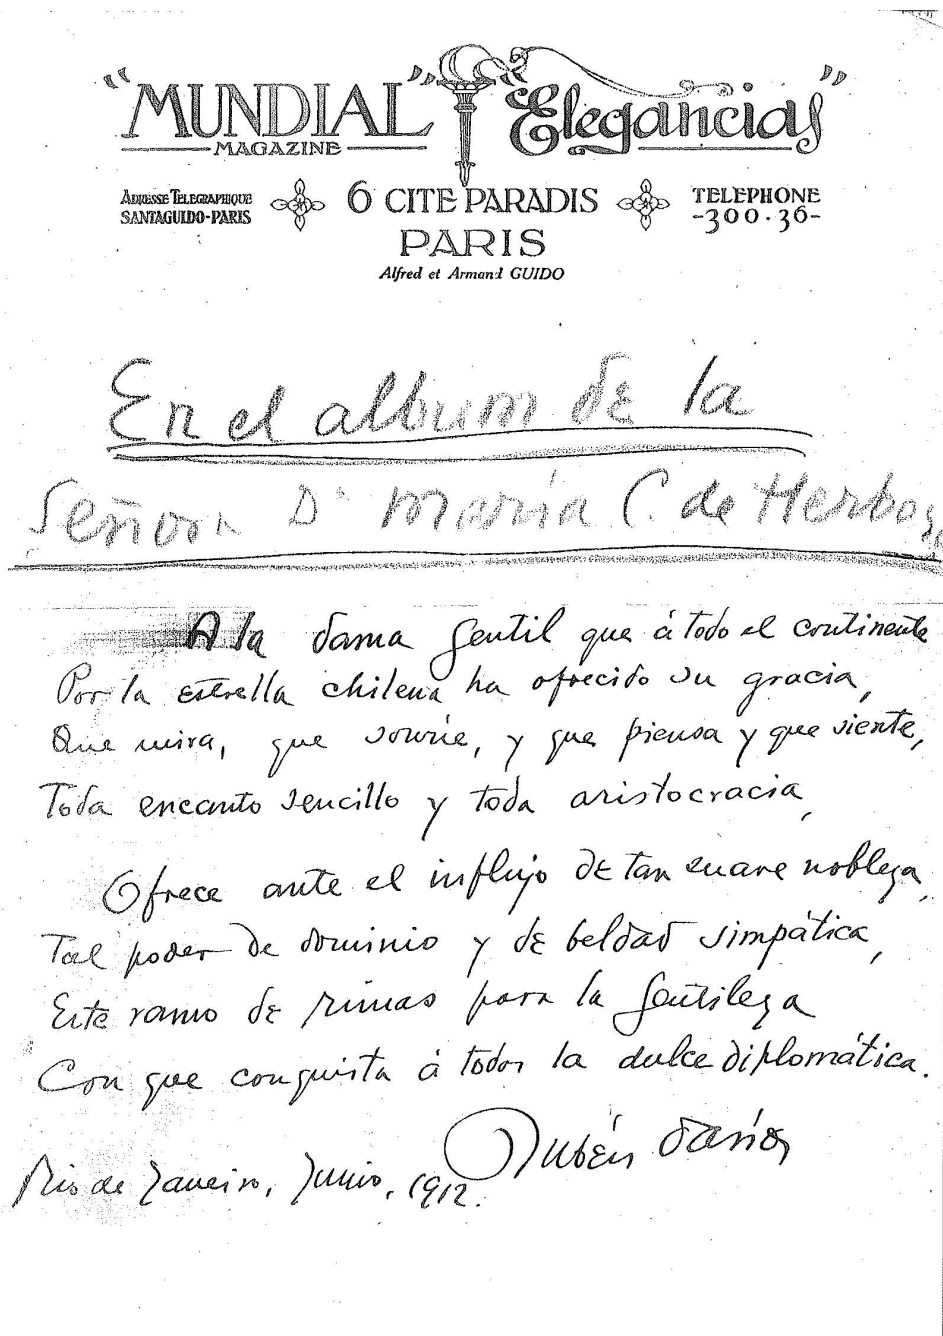 "MUNDIAL" "Elegancias"
MAGAZINE
ADRESSE TELEGRAPHIQUE
SANTAGUIDO-PARIS
6 CITE PARADIS
PARIS
TELEPHONE
-300.36-
Alfred et Armand GUIDO
En el album de la
Señora Dª María C. de Herbos
A la dama gentil que á todo el continente
Por la estrella chilena ha ofrecido su gracia,
Que mira, que sonríe, y que piensa y que siente,
Toda encanto sencillo y toda aristocracia,
Ofrece ante el influjo de tan suave nobleza,
Tal poder de dominio y de beldad simpática,
Este ramo de rimas para la gentileza
Con que conquista á todos la dulce diplomática.
Rubén Darío
Rio de Janeiro, Junio, 1912.